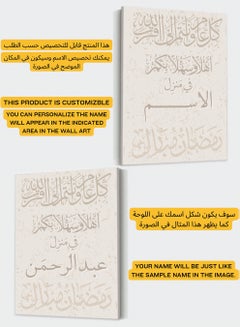 هذا المنتج قابل للتخصيص حسب الطلب
يمكنك تخصيص الاسم وسيكون في المكان
الموضح في الصورة
THIS PRODUCT IS CUSTOMIZBLE
YOU CAN PERSONALIZE THE NAME
WILL APPEAR IN THE INDICATED
AREA IN THE WALL ART
كل عام وأنتم إلى الله أقرب
أهلا وسهلا بكم
في منزل
الاسم
رمضان مبارك
كل عام وأنتم إلى الله أقرب
أهلا وسهلا بكم
في منزل
عبدالرحمن
رمضان مبارك
سوف يكون شكل اسمك على اللوحة
كما يظهر هذا المثال في الصورة
YOUR NAME WILL BE JUST LIKE
THE SAMPLE NAME IN THE IMAGE.